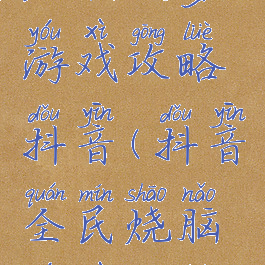 yóu xì gōng lüè
游戏攻略
dǒu yīn dǒu yīn
抖音(抖音
quán mín shāo nǎo
全民烧脑